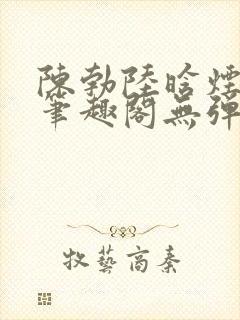 陳勃陸晗煙
筆趣閣無彈
牧藝高秦